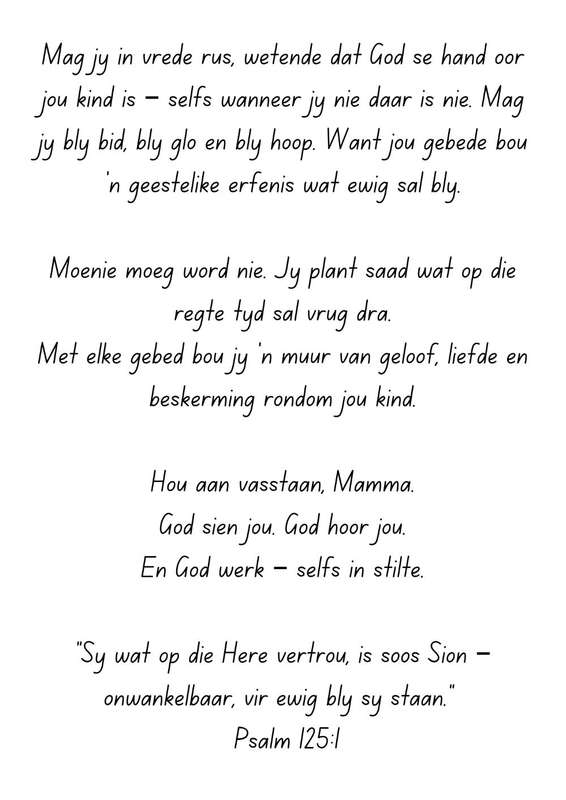 Mag jy in vrede rus, wetende dat God se hand oor
jou kind is – selfs wanneer jy nie daar is nie. Mag
jy bly bid, bly glo en bly hoop. Want jou gebede bou
'n geestelike erfenis wat ewig sal bly.
Moenie moeg word nie. Jy plant saad wat op die
regte tyd sal vrug dra.
Met elke gebed bou jy 'n muur van geloof, liefde en
beskerming rondom jou kind.
Hou aan vasstaan, Mamma.
God sien jou. God hoor jou.
En God werk – selfs in stilte.
"Sy wat op die Here vertrou, is soos Sion –
onwankelbaar, vir ewig bly sy staan."
Psalm 125:1